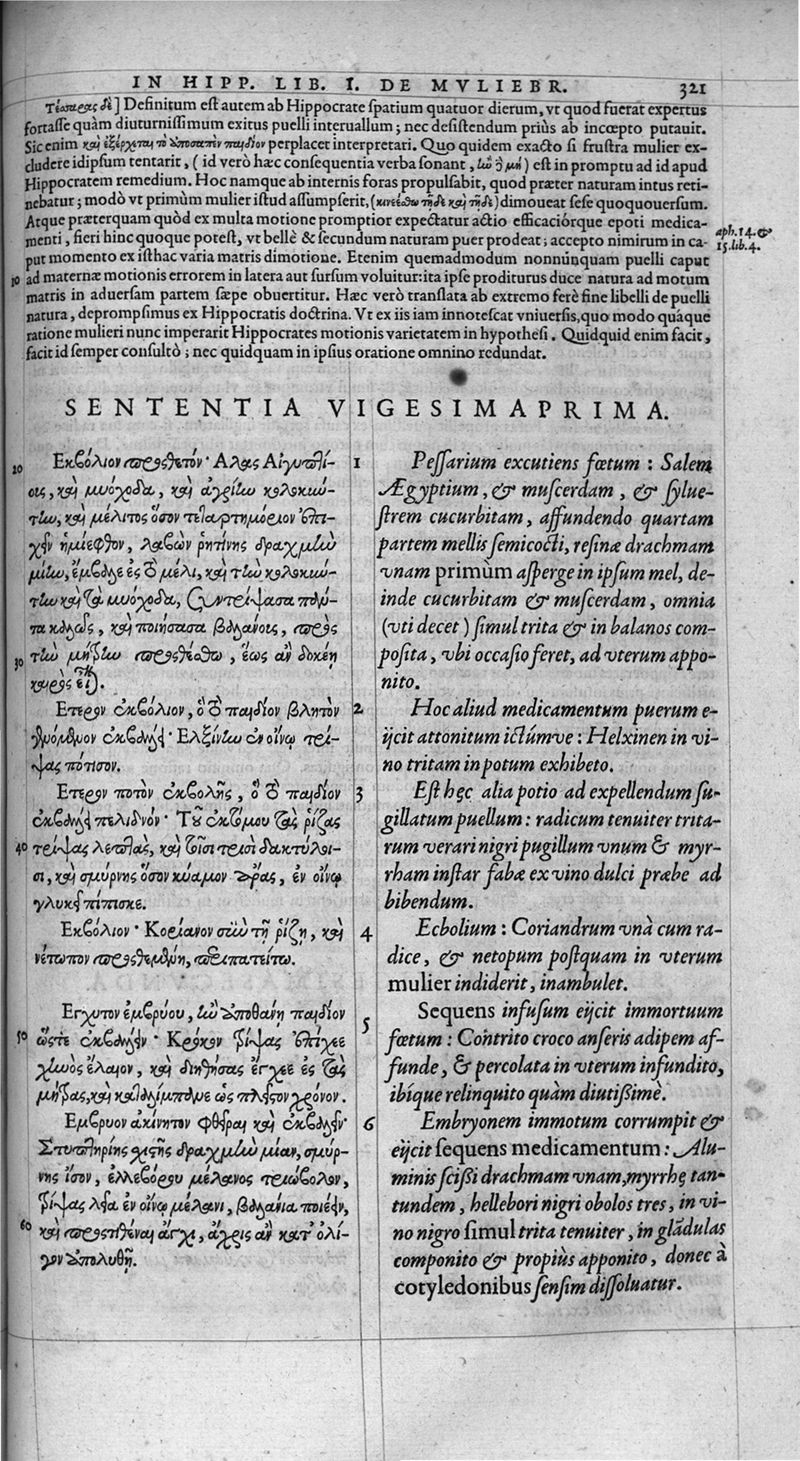 IN HIPP. LIB. I. DE MVLIEBR. 321
Τέσσαρας δὲ] Definitum eſt autem ab Hippocrate ſpatium quatuor dierum, vt quod fuerat expertus
fortaſſe quàm diuturniſſimum exitus puelli interuallum; nec deſiſtendum priùs ab incœpto putauit.
Sic enim καὶ ἐξέρχεται τὸ ἀποσαπὲν παιδίον perplacet interpretari. Quo quidem exacto ſi fruſtra mulier ex-
cludere idipſum tentarit, (id verò hæc conſequentia verba ſonant, ἢν δὲ μὴ) eſt in promptu ad id apud
Hippocratem remedium. Hoc namque ab internis foras propulſabit, quod præter naturam intus reti-
nebatur; modò vt primùm mulier iſtud aſſumpſerit, (κινείσθω τῇδε καὶ τῇδε) dimoueat ſeſe quoquouerſum.
Atque præterquam quòd ex multa motione promptior expectatur actio efficaciórque epoti medica-
menti, fieri hinc quoque poteſt, vt bellè & ſecundum naturam puer prodeat; accepto nimirum in ca-
aph. 14. &
15. lib. 4.
put momento ex iſthac varia matris dimotione. Etenim quemadmodum nonnúnquam puelli caput
10 ad maternæ motionis errorem in latera aut ſurſum voluitur: ita ipſe proditurus duce natura ad motum
matris in aduerſam partem ſæpe obuertitur. Hæc verò tranſlata ab extremo ferè fine libelli de puelli
natura, deprompſimus ex Hippocratis doctrina. Vt ex iis iam innoteſcat vniuerſis, quo modo quáque
ratione mulieri nunc imperarit Hippocrates motionis varietatem in hypotheſi. Quidquid enim facit,
facit id ſemper conſultò; nec quidquam in ipſius oratione omnino redundat.
SENTENTIA VIGESIMAPRIMA.
20 Εκβόλιον προσθετόν· Αλας Αἰγυπτί-
οις, καὶ μυόχοδα, καὶ ἀγρίην κολοκύν-
την, καὶ μέλιτος ὅσον τεταρτημόριον ἐπι-
χεῖν ἡμίεφθον, λαβὼν ῥητίνης δραχμὴν
μίην, ἔμβαλε ἐς τὸ μέλι, καὶ τὴν κολοκύν-
την καὶ τὰ μυόχοδα, ξυντρίψασα πάν-
τα καλῶς, καὶ ποιήσασα βαλάνους, πρὸς
30 τὴν μήτρην προσθέσθω, ἕως ἂν δοκέῃ
καιρὸς εἶναι.
Ετερον ἐκβόλιον, ὃ τὸ παιδίον βλητὸν
γενόμενον ἐκβάλλει· Ελξίνην ἐν οἴνῳ τρί-
ψας πότισον.
Ετερον ποτὸν ἐκβολῆς, ὃ τὸ παιδίον
ἐκβάλλει πελιδνόν· Τοῦ ἐκτόμου τὰς ῥίζας
40 τρίψας λεπτὰς, καὶ τοῖσι τρισὶ δακτύλοι-
σι, καὶ σμύρνης ὅσον κύαμον αἴρας, ἐν οἴνῳ
γλυκεῖ πίπισκε.
Εκβόλιον· Κορίανον σὺν τῇ ῥίζῃ, καὶ
νέτωπον προσθεμένη, περιπατείτω.
Εγχυτον ἐμβρύου, ἢν ἀποθάνῃ παιδίον
50 ὥςτε ἐκβάλλειν· Κρόκον τρίψας ἐπίχεε
χηνὸς ἔλαιον, καὶ διηθήσας ἔγχεε ἐς τὰς
μήτρας, καὶ καταλίμπανε ὡς πλεῖστον χρόνον.
Εμβρυον ἀκίνητον φθεῖραι καὶ ἐκβάλλειν·
Στυπτηρίης σχιστῆς δραχμὴν μίαν, σμύρ-
νης ἴσον, ἑλλεβόρου μέλανος τριώβολον,
τρίψας λεῖα ἐν οἴνῳ μέλανι, βαλάνια ποιέειν,
60 καὶ προστιθέναι ἄγχι, ἄχρις ἂν κατ' ὀλί-
γον ἀπολυθῇ.
1 Peſſarium excutiens fœtum: Salem
Ægyptium, & muſcerdam, & ſylue-
ſtrem cucurbitam, affundendo quartam
partem mellis ſemicocti, reſinæ drachmam
vnam primùm aſperge in ipſum mel, de-
inde cucurbitam & muſcerdam, omnia
(vti decet) ſimul trita & in balanos com-
poſita, vbi occaſio feret, ad vterum appo-
nito.
2 Hoc aliud medicamentum puerum e-
ijcit attonitum ictúmve: Helxinen in vi-
no tritam in potum exhibeto.
3 Eſt hęc alia potio ad expellendum ſu-
gillatum puellum: radicum tenuiter trita-
rum verari nigri pugillum vnum & myr-
rham inſtar fabæ ex vino dulci præbe ad
bibendum.
4 Ecbolium: Coriandrum vnà cum ra-
dice, & netopum poſtquam in vterum
mulier indiderit, inambulet.
5 Sequens infuſum eijcit immortuum
fœtum: Contrito croco anſeris adipem af-
funde, & percolata in vterum infundito,
ibíque relinquito quàm diutißimè.
6 Embryonem immotum corrumpit &
eijcit ſequens medicamentum: Alu-
minis ſcißi drachmam vnam, myrrhę tan-
tundem, hellebori nigri obolos tres, in vi-
no nigro ſimul trita tenuiter, in glãdulas
componito & propiùs apponito, donec à
cotyledonibus ſenſim diſſoluatur.